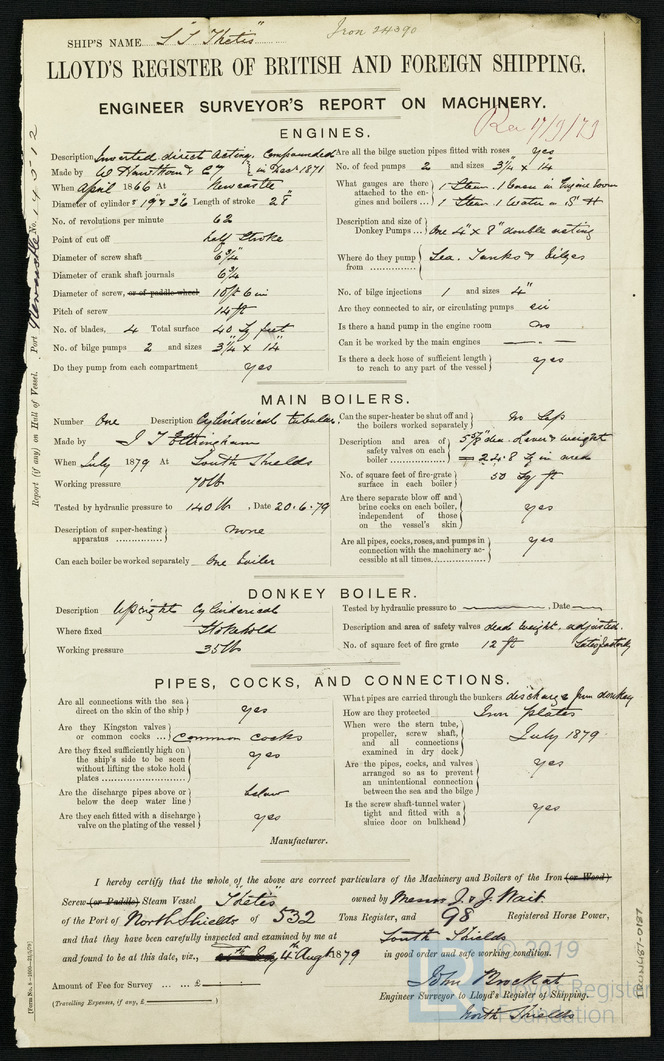 Iron 24390
SHIP'S NAME S S "Thetis"
LLOYD'S REGISTER OF BRITISH AND FOREIGN SHIPPING.
ENGINEER SURVEYOR'S REPORT ON MACHINERY.
17/9/79
ENGINES.
Description Inverted direct Acting, Compounded
Made by in Decr 1871
When April 1866 At Newcastle
Diameter of cylinders 19" & 36" Length of stroke 28"
No. of revolutions per minute 62
Point of cut off half Stroke
Diameter of screw shaft 6 3/4"
Diameter of crank shaft journals 6 3/4
Diameter of screw, or of paddle wheel 10ft 6in
Pitch of screw 14ft
No. of blades, 4 Total surface 40 Sq feet
No. of bilge pumps 2 and sizes 3 1/4 x 14"
Do they pump from each compartment yes
Are all the bilge suction pipes fitted with roses yes
No. of feed pumps 2 and sizes 3 1/4 x 14"
What gauges are there attached to the engines and boilers ... 1 Steam 1 Vacm in Engine Room
1 Steam 1 Water in S' H
Description and size of Donkey Pumps ... One 4" x 8" double acting
Where do they pump from ............... Sea, Tanks & Bilges
No. of bilge injections 1 and sizes 4"
Are they connected to air, or circulating pumps air
Is there a hand pump in the engine room No
Can it be worked by the main engines — . —
Is there a deck hose of sufficient length to reach to any part of the vessel yes
Report (if any) on Hull of Vessel. Port Newcastle No.
MAIN BOILERS.
Number One Description Cylinderical tubular.
Made by
When July 1879 At South Shields
Working pressure 70lb
Tested by hydraulic pressure to 140lb. Date 20.6.79
Description of super-heating apparatus ............... None
Can each boiler be worked separately One boiler
Can the super-heater be shut off and the boilers worked separately
Description and area of safety valves on each boiler ............... dia. Lever & weight
24.8 Sq in area
No. of square feet of fire-grate surface in each boiler 50 Sq ft
Are there separate blow off and brine cocks on each boiler, independent of those on the vessel's skin yes
Are all pipes, cocks, roses, and pumps in connection with the machinery accessible at all times............... yes
DONKEY BOILER.
Description Upright Cylinderical
Where fixed Stokehold
Working pressure 35lb
Tested by hydraulic pressure to ——, Date ——
Description and area of safety valves dead weight, adjusted.
No. of square feet of fire grate 12 ft Satisfactorily
PIPES, COCKS, AND CONNECTIONS.
Are all connections with the sea direct on the skin of the ship yes
Are they Kingston valves or common cocks ... Common Cocks
Are they fixed sufficiently high on the ship's side to be seen without lifting the stoke hold plates ............... yes
Are the discharge pipes above or below the deep water line below
Are they each fitted with a discharge valve on the plating of the vessel yes
What pipes are carried through the bunkers discharge from donkey
How are they protected Iron plates
When were the stern tube, propeller, screw shaft, and all connections examined in dry dock July 1879
Are the pipes, cocks, and valves arranged so as to prevent an unintentional connection between the sea and the bilge yes
Is the screw shaft-tunnel water tight and fitted with a sluice door on bulkhead yes
Manufacturer.
I hereby certify that the whole of the above are correct particulars of the Machinery and Boilers of the Iron (or Wood)
Screw (or Paddle) Steam Vessel "Thetis" owned by Messrs J. & J. Wait
of the Port of North Shields of 532 Tons Register, and 98 Registered Horse Power,
and that they have been carefully inspected and examined by me at South Shields
and found to be at this date, viz., 4th Augt 1879 in good order and safe working condition.
Amount of Fee for Survey ... ... £
John Brockat
Engineer Surveyor to Lloyd's Register of Shipping.
North Shields
(Travelling Expenses, if any, £ )
© 2019
LR
Lloyd's Register
Foundation